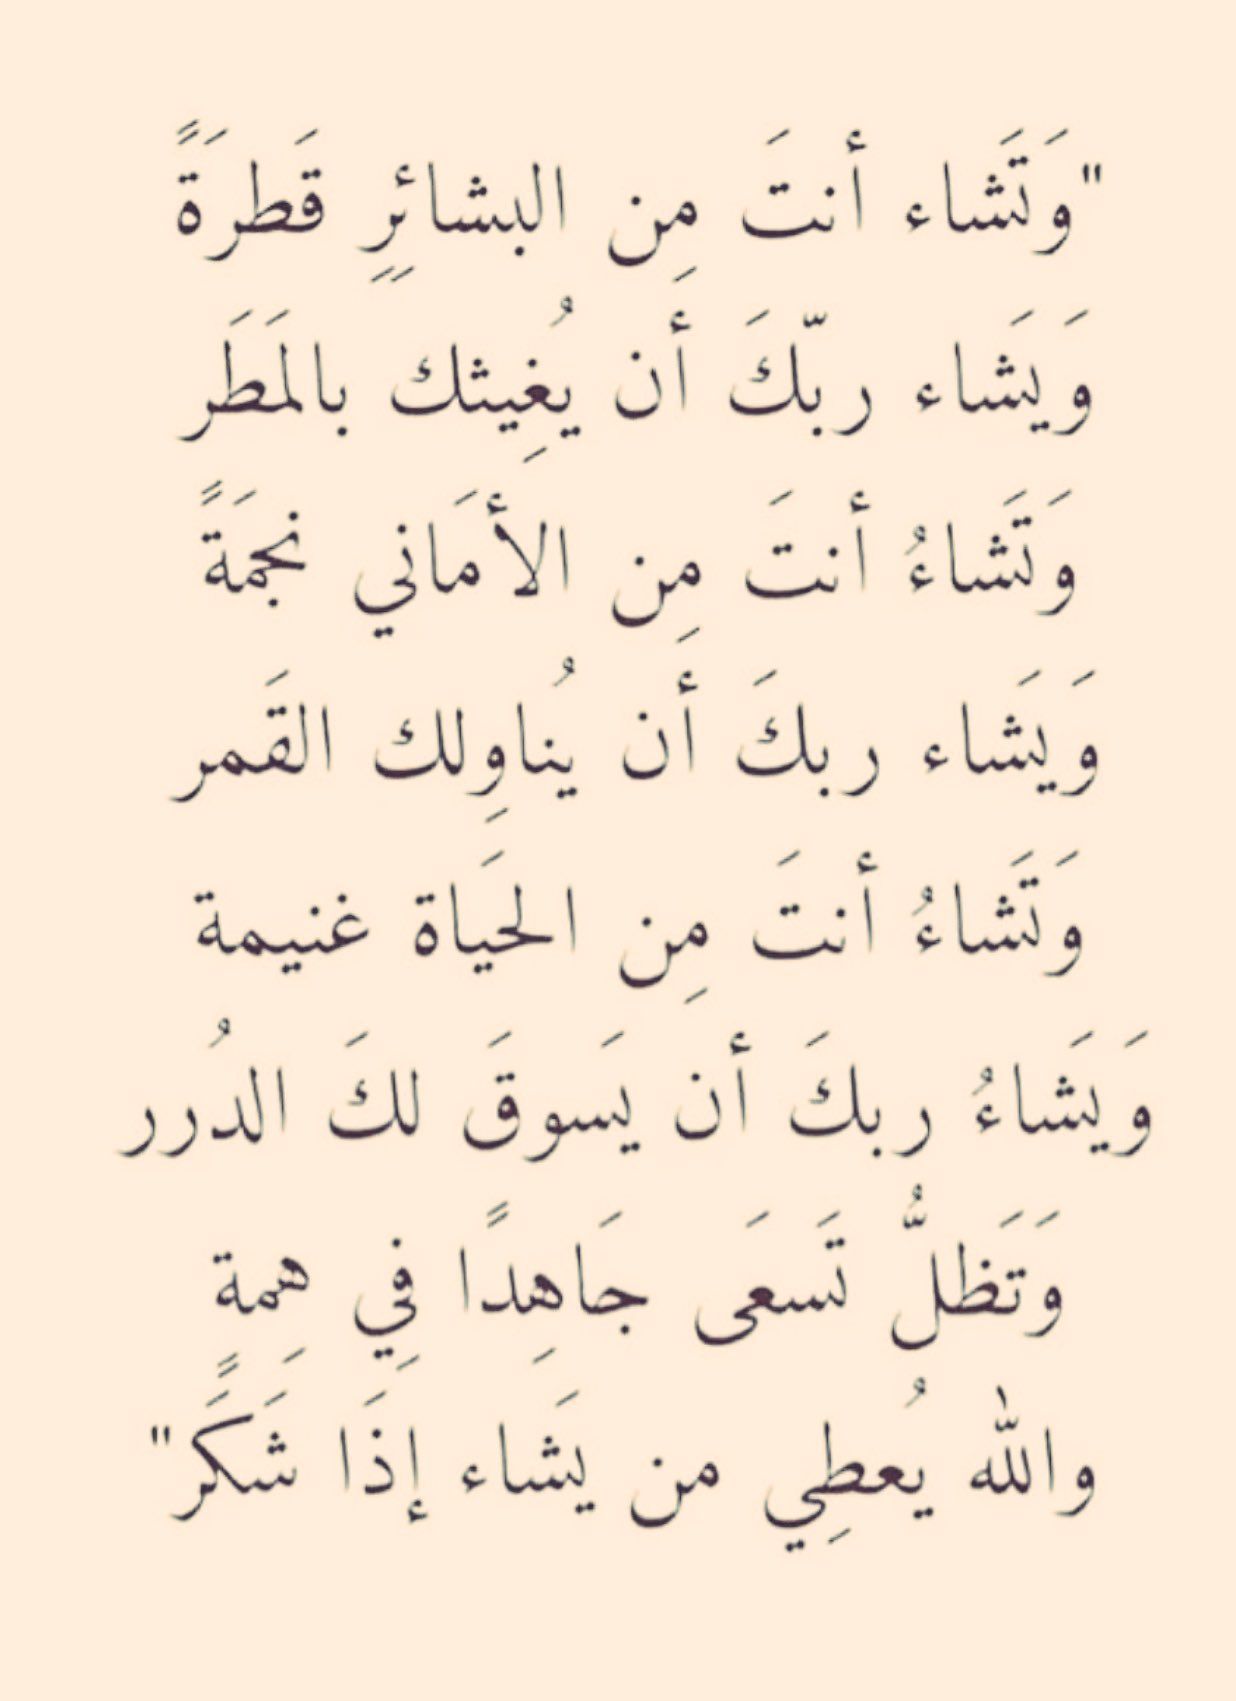 "وَتَشَاء أنتَ مِن البشائرِِ قَطرَةً
وَيَشَاء ربّكَ أَن يُغِيثك بالمَطَر
وَتَشَاءُ أنتَ مِن الأمَاني نجمَةً
وَيَشَاء ربكَ أَن يُناوِلك القَمر
وَتَشَاءُ أنتَ مِن الحَياة غنيمة
وَيَشَاءُ ربكَ أن يَسوقَ لكَ الدُرر
وَتَظَلُّ تَسعَى جَاهِدًا فِي هِمةٍ
والله يُعطِي من يَشاء إذَا شَكَر"